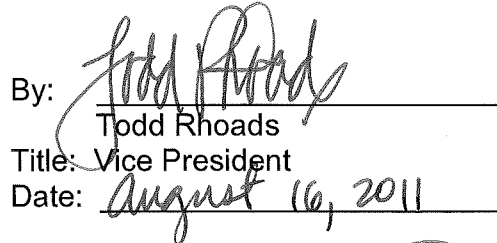 By: Todd Rhoads
Todd Rhoads
Title: Vice President
Date: August 16, 2011